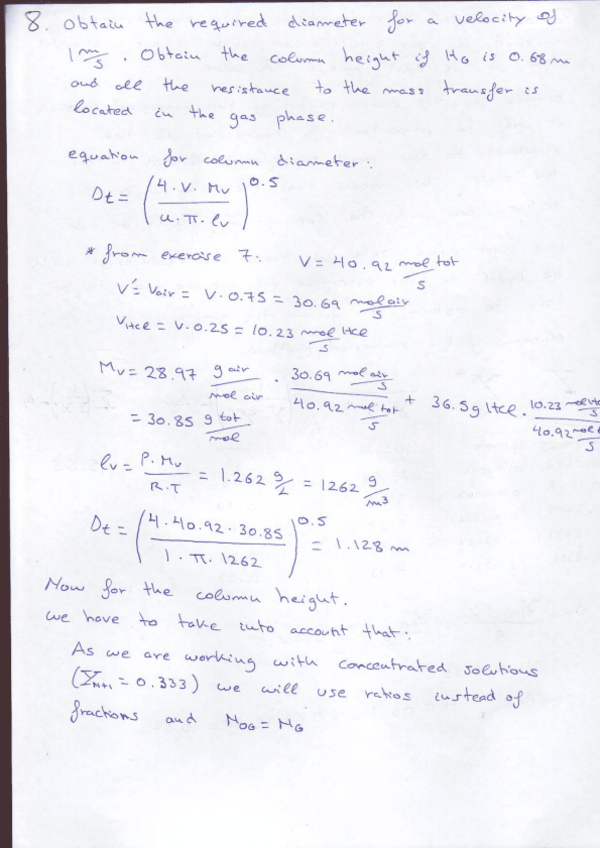 8. Obtain the required diameter for a velocity of
1 m/s. Obtain the column height if HG is 0.68 m
and all the resistance to the mass transfer is
located in the gas phase.
equation for column diameter:
Dt = (4·V·Mv / u·π·ρv)^0.5
* from exercise 7: V = 40.92 mol tot/s
V' = Vair = V·0.75 = 30.69 mol air/s
VHCl = V·0.25 = 10.23 mol HCl/s
Mv = 28.97 g air/mol air · 30.69 mol air/s / 40.92 mol tot/s + 36.5 g HCl · 10.23 mol HCl/s / 40.92 mol t/s
= 30.85 g tot/mol
ρv = P·Mv / R·T = 1.262 g/L = 1262 g/m³
Dt = (4·40.92·30.85 / 1·π·1262)^0.5 = 1.128 m
Now for the column height.
we have to take into account that:
As we are working with concentrated solutions
(YN+1 = 0.333) we will use ratios instead of
fractions and NOG = NG